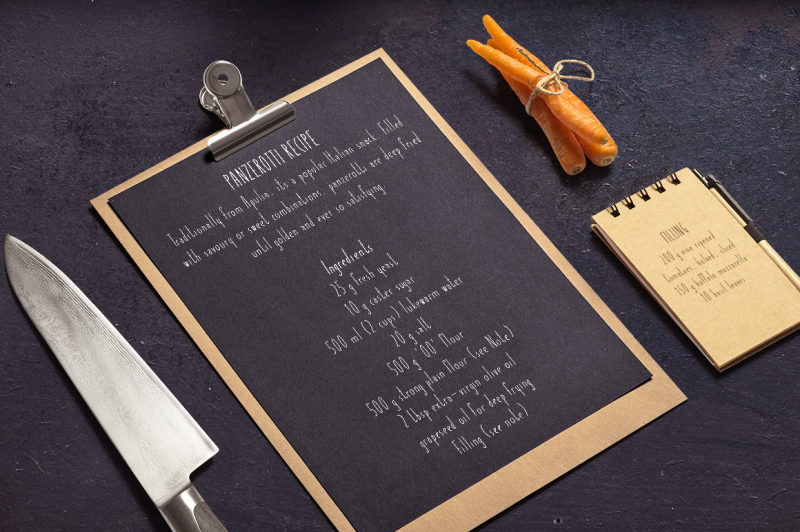 PANZEROTTI RECIPE
Traditionally from Apulia, its a popular Italian snack. Filled
with savoury or sweet combinations, panzerotti are deep fried
until golden and ever so satisfying
Ingredients
25 g fresh yeast
10 g caster sugar
500 ml (2 cups) lukewarm water
20 g salt
500 g '00' flour
500 g strong plain flour (see Note)
2 tbsp extra-virgin olive oil
grapeseed oil for deep frying
Filling (see note)
FILLING
200 g vine ripened
tomatoes, halved, sliced
150 g buffalo mozzarella
10 basil leaves